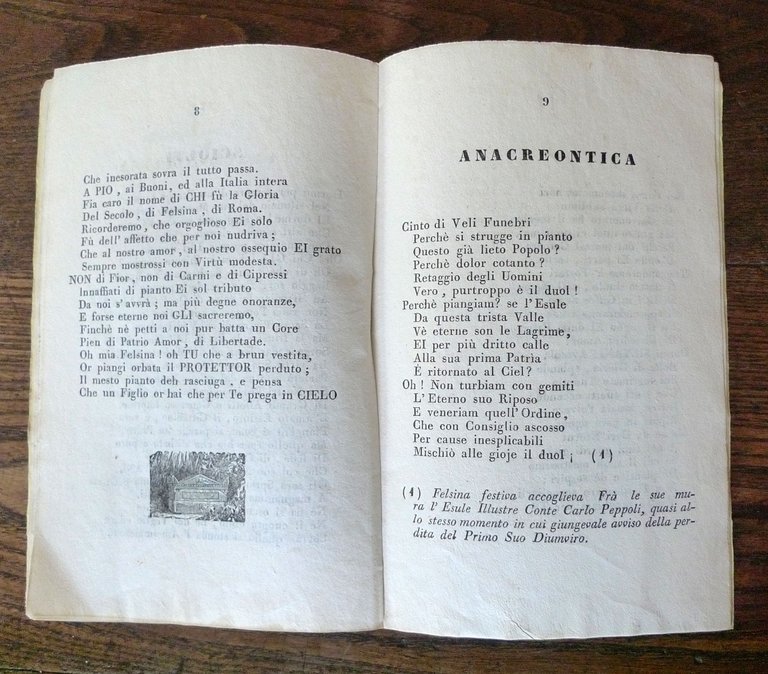 8
Che inesorata sovra il tutto passa.
A PIO , ai Buoni, ed alla Italia intera
Fia caro il nome di CHI fù la Gloria
Del Secolo, di Felsina , di Roma.
Ricorderemo, che orgoglioso Ei solo
Fù dell' affetto che per noi nudriva ;
Che al nostro amor, al nostro ossequio EI grato
Sempre mostrossi con Virtù modesta.
NON di Fior, non di Carmi e di Cipressi
Innaffiati di pianto Ei sol tributo
Da noi s' avvrà ; ma più degne onoranze,
E forse eterne noi GLI sacreremo,
Finchè nè petti a noi pur batta un Core
Pien di Patrio Amor, di Libertade.
Oh mia Felsina ! oh TU che a brun vestita,
Or piangi orbata il PROTETTOR perduto ;
Il mesto pianto deh rasciuga , e pensa
Che un Figlio or hai che per Te prega in CIELO
9
ANACREONTICA
Cinto di Veli Funebri
Perchè si strugge in pianto
Questo già lieto Popolo ?
Perchè dolor cotanto ?
Retaggio degli Uomini
Vero , purtroppo è il duol !
Perchè piangiam? se l'Esule
Da questa trista Valle
Vè eterne son le Lagrime,
EI per più dritto calle
Alla sua prima Patria
È ritornato al Ciel?
Oh ! Non turbiam con gemiti
L' Eterno suo Riposo
E veneriam quell' Ordine,
Che con Consiglio ascosso
Per cause inesplicabili
Mischiò alle gioje il duol ; (1)
(1) Felsina festiva accoglieva Frà le sue mu-
ra l' Esule Illustre Conte Carlo Peppoli, quasi al-
lo stesso momento in cui giungevale avviso della per-
dita del Primo Suo Diumviro.